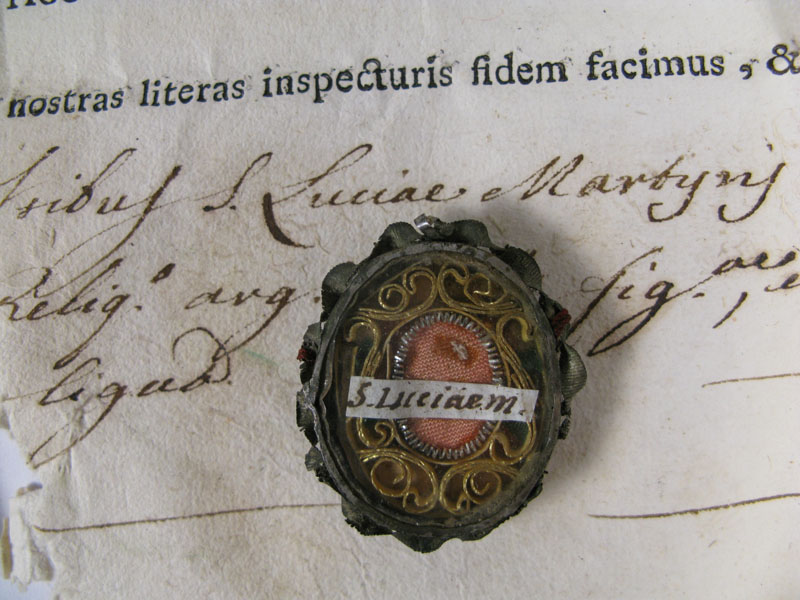 nostras literas inspecturis fidem facimus, &
S. Luciae Martyris
Relig.º arg. fig.ae,
ligua
S. Luciae m.